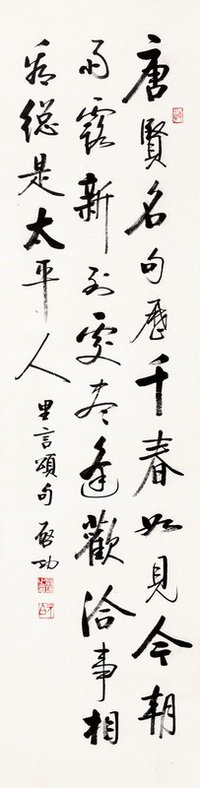 唐賢名句歷千春如見今朝
雨露新到處盡逢歡洽事相
看總是太平人 里言頌句 啓功